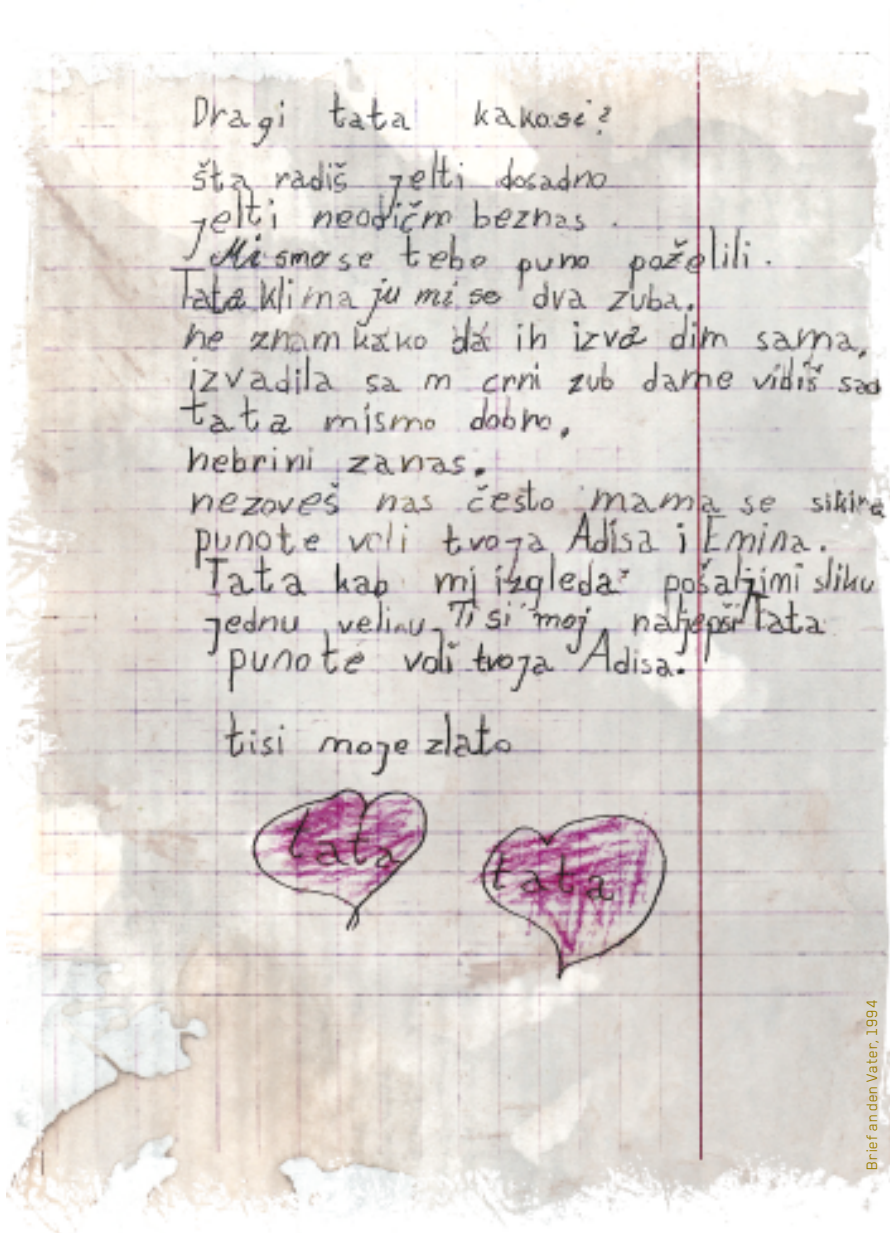 Dragi tata kakosi?
šta radiš jelti dosadno
jelti neodičm beznas.
Mi smo se tebe puno poželili.
Tata klimaju mi se dva zuba.
ne znam kako da ih izvadim sama,
izvadila sam crni zub dame vidiš sad
tata mismo dobro,
nebrini zanas.
nezoveš nas često mama se sikira
punote voli tvoja Adisa i Emina.
Tata kab mi izgledaš pošaljimi sliku
jednu veliku. Ti si moj naljepši Tata
punote voli tvoja Adisa.
tisi moje zlato
tata
tata
Brief an den Vater, 1994